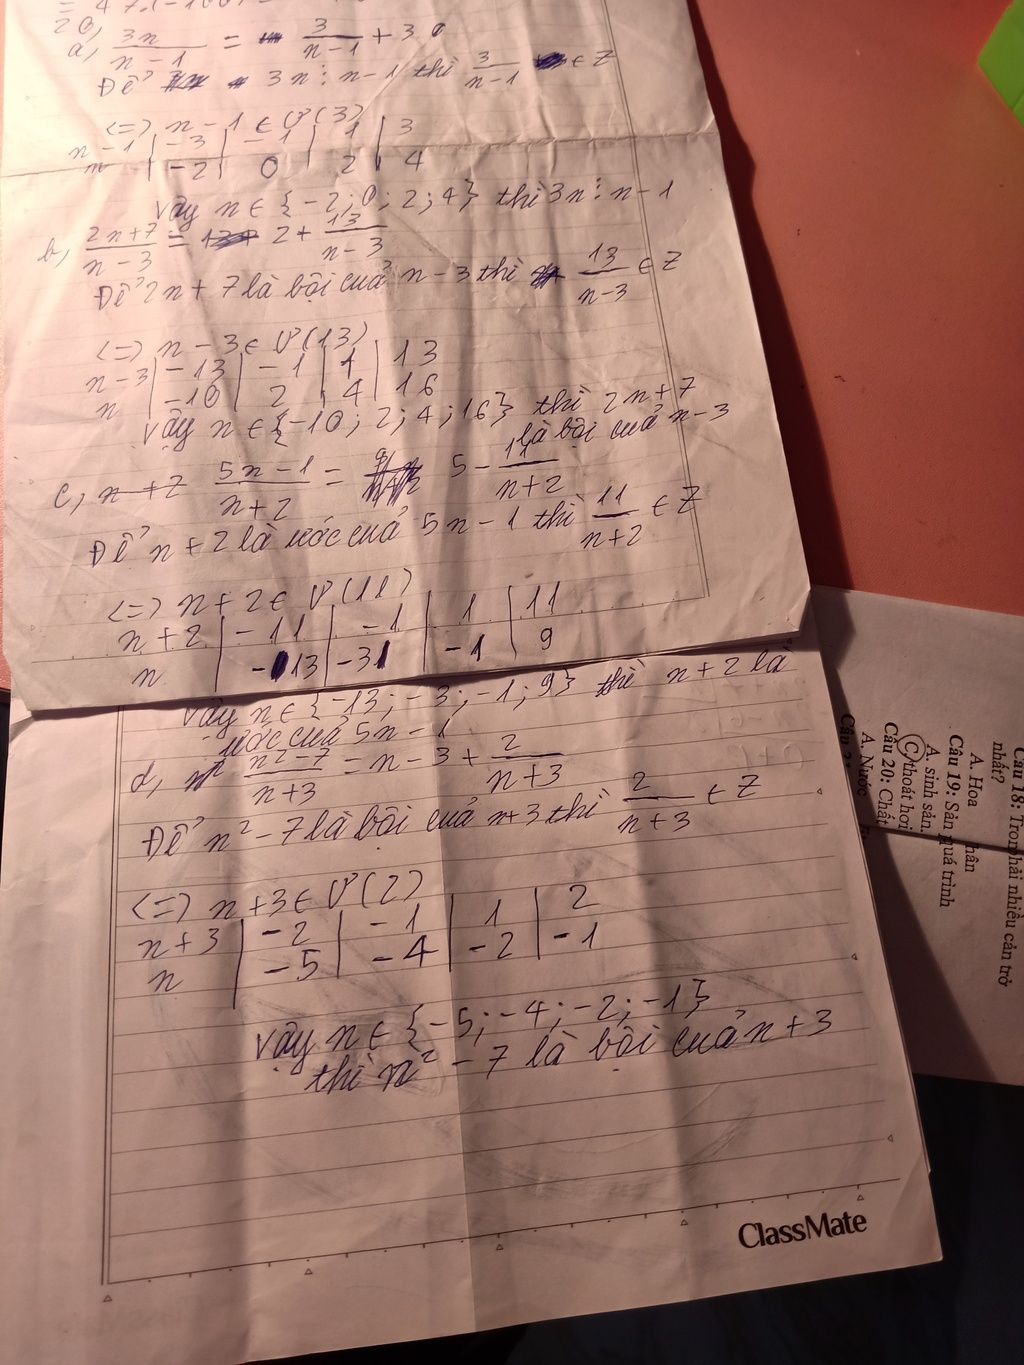 20,
a, 3n/n-1 = 3/n-1 + 3
Để 3n ⋮ n-1 thì 3/n-1 ∈ Z
<=> n-1 ∈ Ư(3)
n-1 | -3 | -1 | 1 | 3
n | -2 | 0 | 2 | 4
Vậy n ∈ {-2; 0; 2; 4} thì 3n ⋮ n-1
b, 2n+7/n-3 = 2 + 13/n-3
Để 2n + 7 là bội cuả n-3 thì 13/n-3 ∈ Z
<=> n-3 ∈ Ư(13)
n-3 | -13 | -1 | 1 | 13
n | -10 | 2 | 4 | 16
Vậy n ∈ {-10; 2; 4; 16} thì 2n+7
là bội cuả n-3
c, 5n-1/n+2 = 5 - 11/n+2
Để n+2 là ước cuả 5n-1 thì 11/n+2 ∈ Z
<=> n+2 ∈ Ư(11)
n+2 | -11 | -1 | 1 | 11
n | -13 | -3 | -1 | 9
Vậy n ∈ {-13; -3; -1; 9} thì n+2 là
ước cuả 5n-1
d, n²-7/n+3 = n-3 + 2/n+3
Để n²-7 là bội cuả n+3 thì 2/n+3 ∈ Z
<=> n+3 ∈ Ư(2)
n+3 | -2 | -1 | 1 | 2
n | -5 | -4 | -2 | -1
Vậy n ∈ {-5; -4; -2; -1}
thì n²-7 là bội cuả n+3
ClassMate
Câu 18: Tron
hải nhiều cản trở
nhất?
A. Hoa
hân
Câu 19: Sản
quá trình
A. sinh sản.
C. thoát hơi
Câu 20: Chất
A. Nước